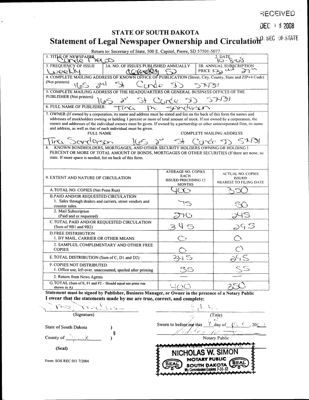 RECEIVED
DEC 2008
STATE OF SOUTH DAKOTA
Statement of Legal Newspaper Ownership and Circulation
SEC OF STATE
Return to: Secretary of State, 500 E. Capitol, Pierre, SD 57501-5077
1. TITLE OF NEWSPAPER
2. DATE
3. FREQUENCY OF ISSUE
3A. NO. OF ISSUES PUBLISHED ANNUALLY
3B. ANNUAL SUBSCRIPTION PRICE
Weekly
4. COMPLETE MAILING ADDRESS OF KNOWN OFFICE OF PUBLICATION (Street, City, County, State and ZIP+4 Code)
(Not printers)
5. COMPLETE MAILING ADDRESS OF THE HEADQUARTERS OR GENERAL BUSINESS OFFICES OF THE
PUBLISHER (Not printers)
6. FULL NAME OF PUBLISHER:
Tina M Sanderson
7. OWNER (If owned by corporation, its name and address must be stated and list on the back of this form the names and
addresses of stockholders owning or holding 1 percent or more of total amount of stock. If not owned by a corporation, the
names and addresses of the individual owners must be given. If owned by a partnership or other unincorporated firm, its name
and address, as well as that of each individual must be given.
FULL NAME COMPLETE MAILING ADDRESS
Tina Sanderson
8. KNOWN BONDHOLDERS, MORTGAGES, AND OTHER SECURITY HOLDERS OWNING OR HOLDING 1
PERCENT OR MORE OF TOTAL AMOUNT OF BONDS, MORTGAGES OR OTHER SECURITIES (If there are none, so
state. If more space is needed, list on back of this form.
9. EXTENT AND NATURE OF CIRCULATION
AVERAGE NO. COPIES EACH ISSUED PRECEDING 12 MONTHS
ACTUAL NO. COPIES ISSUED NEAREST TO FILING DATE
A. TOTAL NO. COPIES (Net Press Run) 400 350
B. PAID AND/OR REQUESTED CIRCULATION
1. Sales through dealers and carriers, street vendors and
county sales 75 50
2. Mail Subscription
(Paid and or requested) 270 245
C. TOTAL PAID AND/OR REQUESTED CIRCULATION
(Sum of 9B1 and 9B2) 345 295
D. FREE DISTRIBUTION
1. BY MAIL, CARRIER OR OTHER MEANS 0 0
2. SAMPLES, COMPLIMENTARY AND OTHER FREE
COPIES 0 0
E. TOTAL DISTRIBUTION (Sum of C, D1 and D2) 345 295
F. COPIES NOT DISTRIBUTED
1. Office use, left over, unaccounted, spoiled after printing 55
2. Return from News Agents
G. TOTAL (Sum of E, F1 and F2 - Should equal net press run
shown in A) 400 350
Statement must be signed by Publisher, Business Manager, or Owner in the presence of a Notary Public
I swear that the statements made by me are true, correct, and complete:
(Signature) (Title)
State of South Dakota )
County of )
Sworn to before me this day of
(Seal)
Notary Public
NICHOLAS W. SIMON
NOTARY PUBLIC
SOUTH DAKOTA
SEAL SEAL
My Commission Expires
Form: SOS REC 051 7/2004